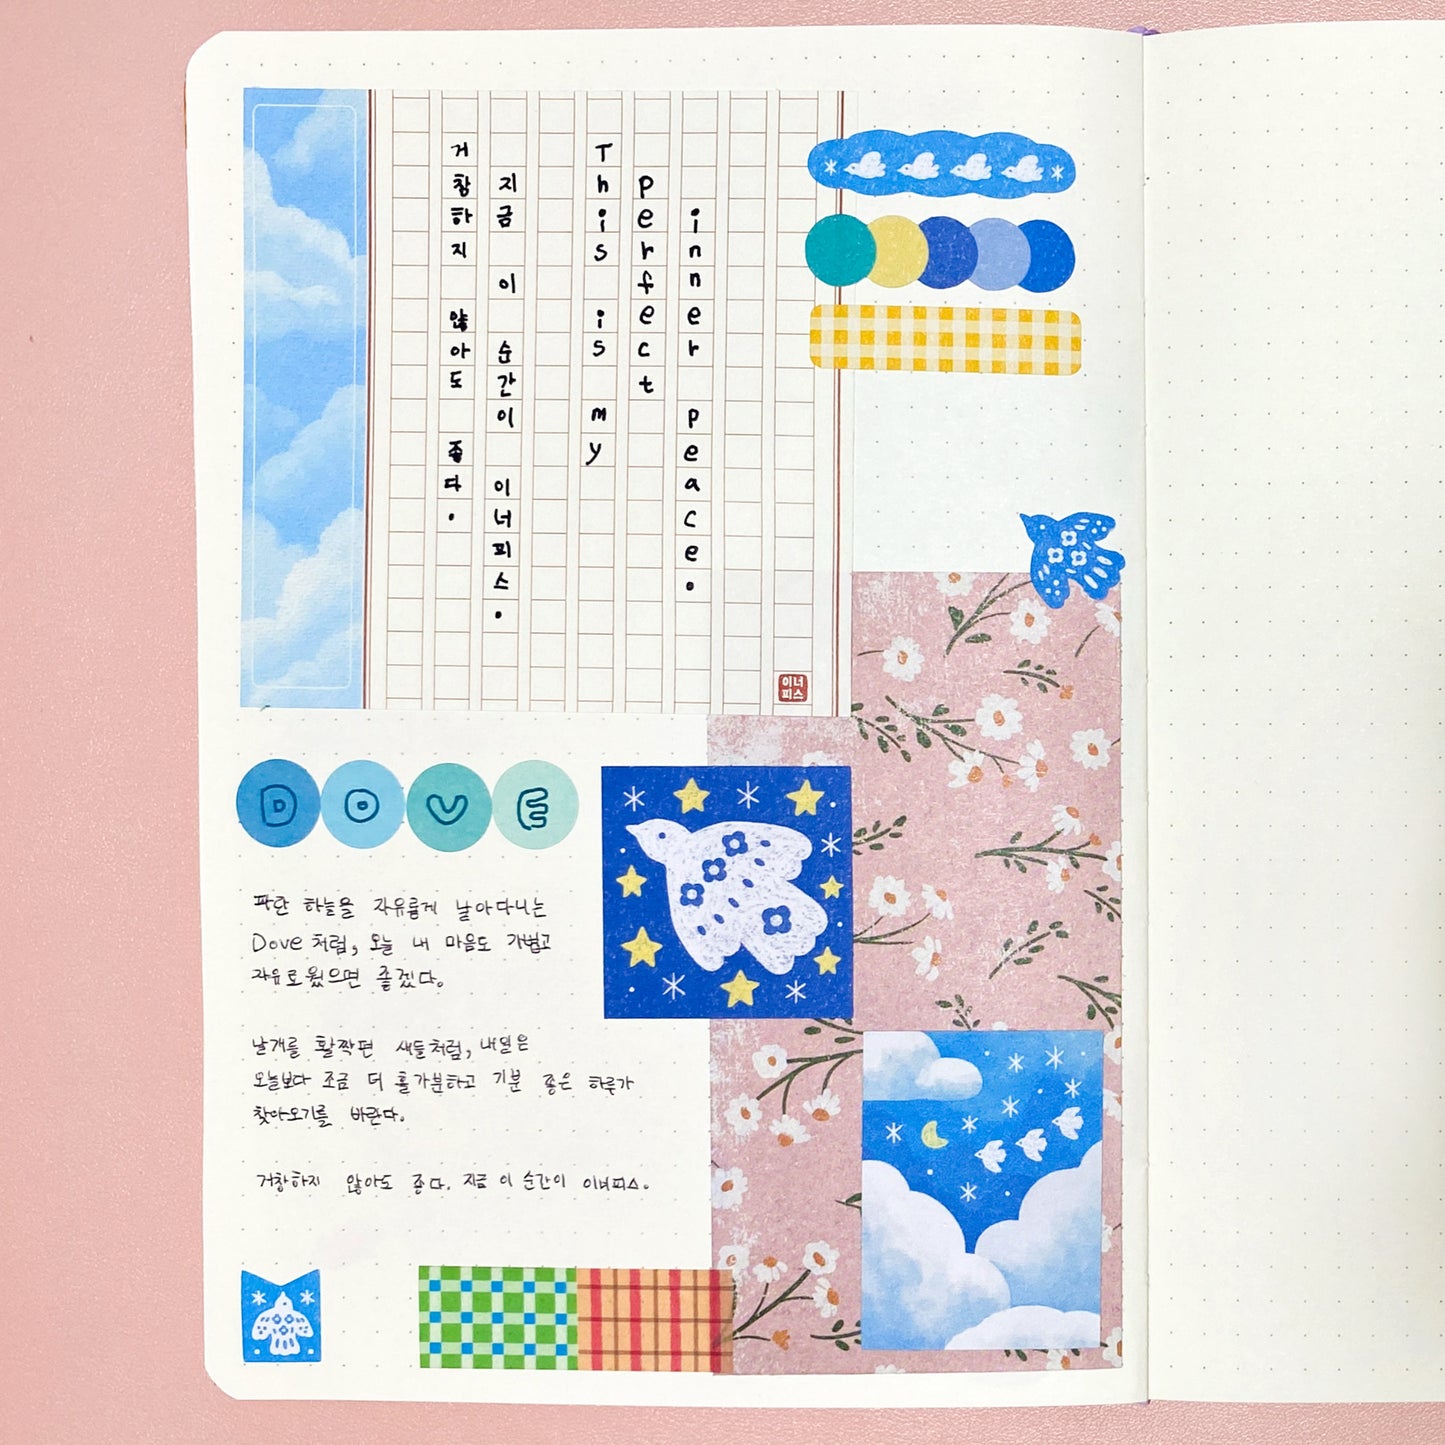 거창하지 않아도 좋다.
지금 이 순간이 이너피스.
This is my
perfect
inner peace.
이너
피스
DOVE
파란 하늘을 자유롭게 날아다니는
Dove처럼, 오늘 내 마음도 가볍고
자유로웠으면 좋겠다.
날개를 활짝편 새들처럼, 내일은
오늘보다 조금 더 홀가분하고 기분 좋은 하루가
찾아오기를 바란다.
거창하지 않아도 좋다. 지금 이 순간이 이너피스.